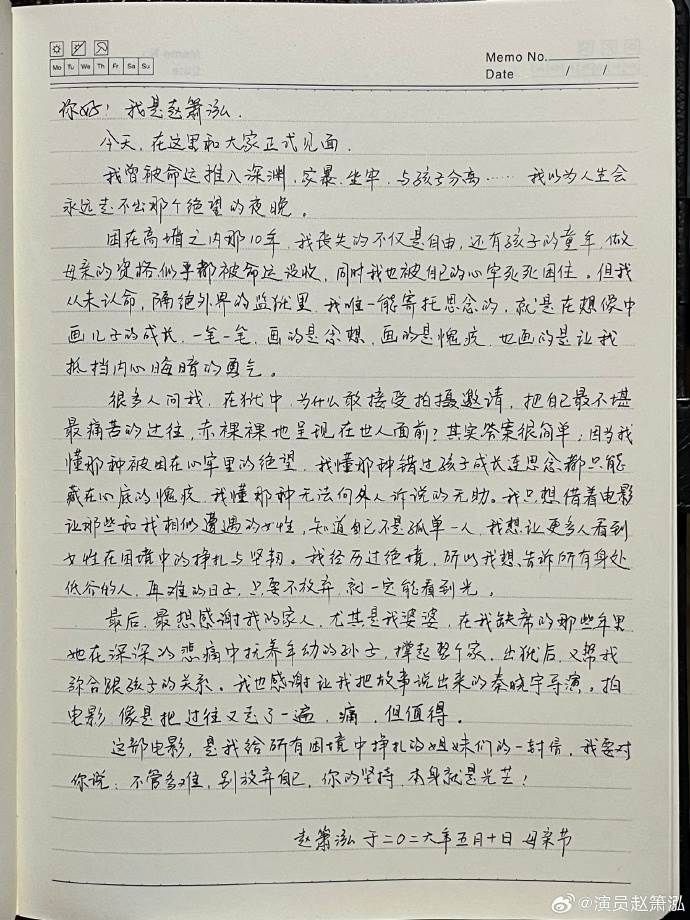 Memo No.
Mo Tu We Th Fr Sa Su
Date / /
你好！我是赵箫泓.
今天，在这里和大家正式见面.
我曾被命运推入深渊，家暴、坐牢、与孩子分离……我以为人生会
永远走不出那个绝望的夜晚。
困在高墙之内那10年，我丧失的不仅是自由，还有孩子的童年，做
母亲的资格似乎都被命运没收，同时我也被自己的心牢死死困住。但我
从未认命，隔绝外界的监狱里，我唯一能寄托思念的，就是在想像中
画儿子的成长，一笔一笔，画的是念想，画的是愧疚，也画的是让我
抵挡内心晦暗的勇气。
很多人问我，在狱中，为什么敢接受拍摄邀请，把自己最不堪
最痛苦的过往，赤裸裸地呈现在世人面前？其实答案很简单：因为我
懂那种被困在心牢里的绝望，我懂那种错过孩子成长连思念都只能
藏在心底的愧疚，我懂那种无法向外人诉说的无助。我只想借着电影
让那些和我相似遭遇的女性，知道自己不是孤单一人，我想让更多人看到
女性在困境中的挣扎与坚韧。我经历过绝境，所以我想告诉所有身处
低谷的人，再难的日子，只要不放弃，就一定能看到光。
最后，最想感谢我的家人，尤其是我婆婆，在我缺席的那些年里
她在深深的悲痛中抚养年幼的孙子，撑起整个家，出狱后，又帮我
弥合跟孩子的关系。我也感谢让我把故事说出来的秦晓宇导演。拍
电影，像是把过往又走了一遍，痛，但值得。
这部电影，是我给所有困境中挣扎的姐妹们的一封信，我要对
你说：不管多难，别放弃自己，你的坚持，本身就是光芒！
赵箫泓 于二〇二六年五月十日 母亲节
@演员赵箫泓